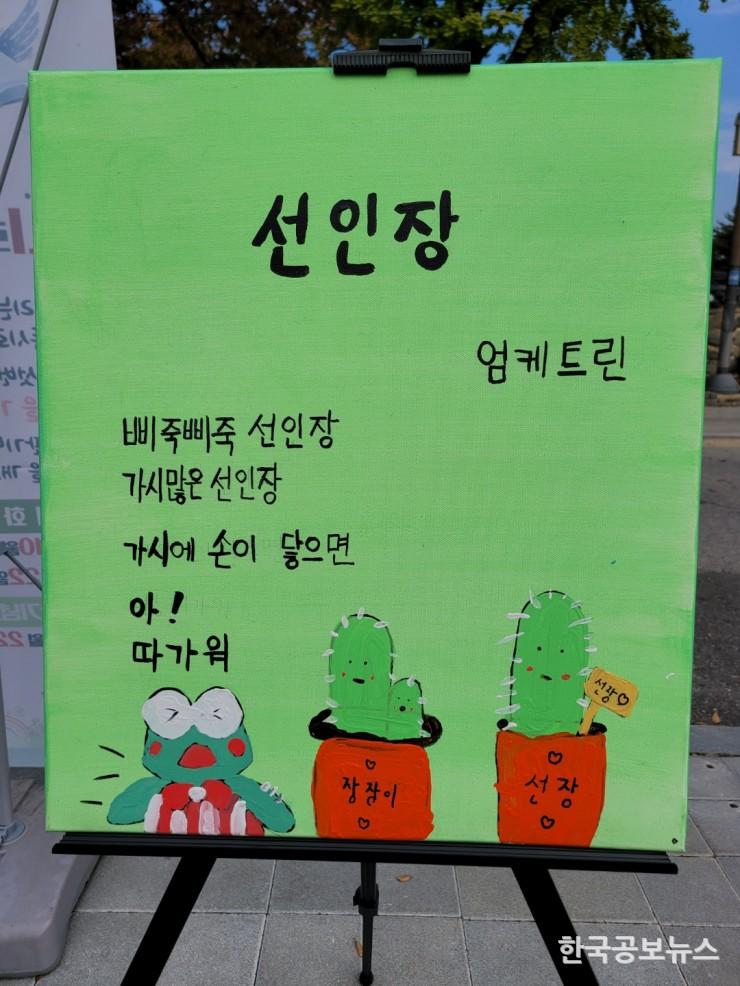 선인장
엄케트린
삐죽삐죽 선인장
가시많은 선인장
가시에 손이 닿으면
아!
따가워
선장♡
장장이
선장
한국공보뉴스